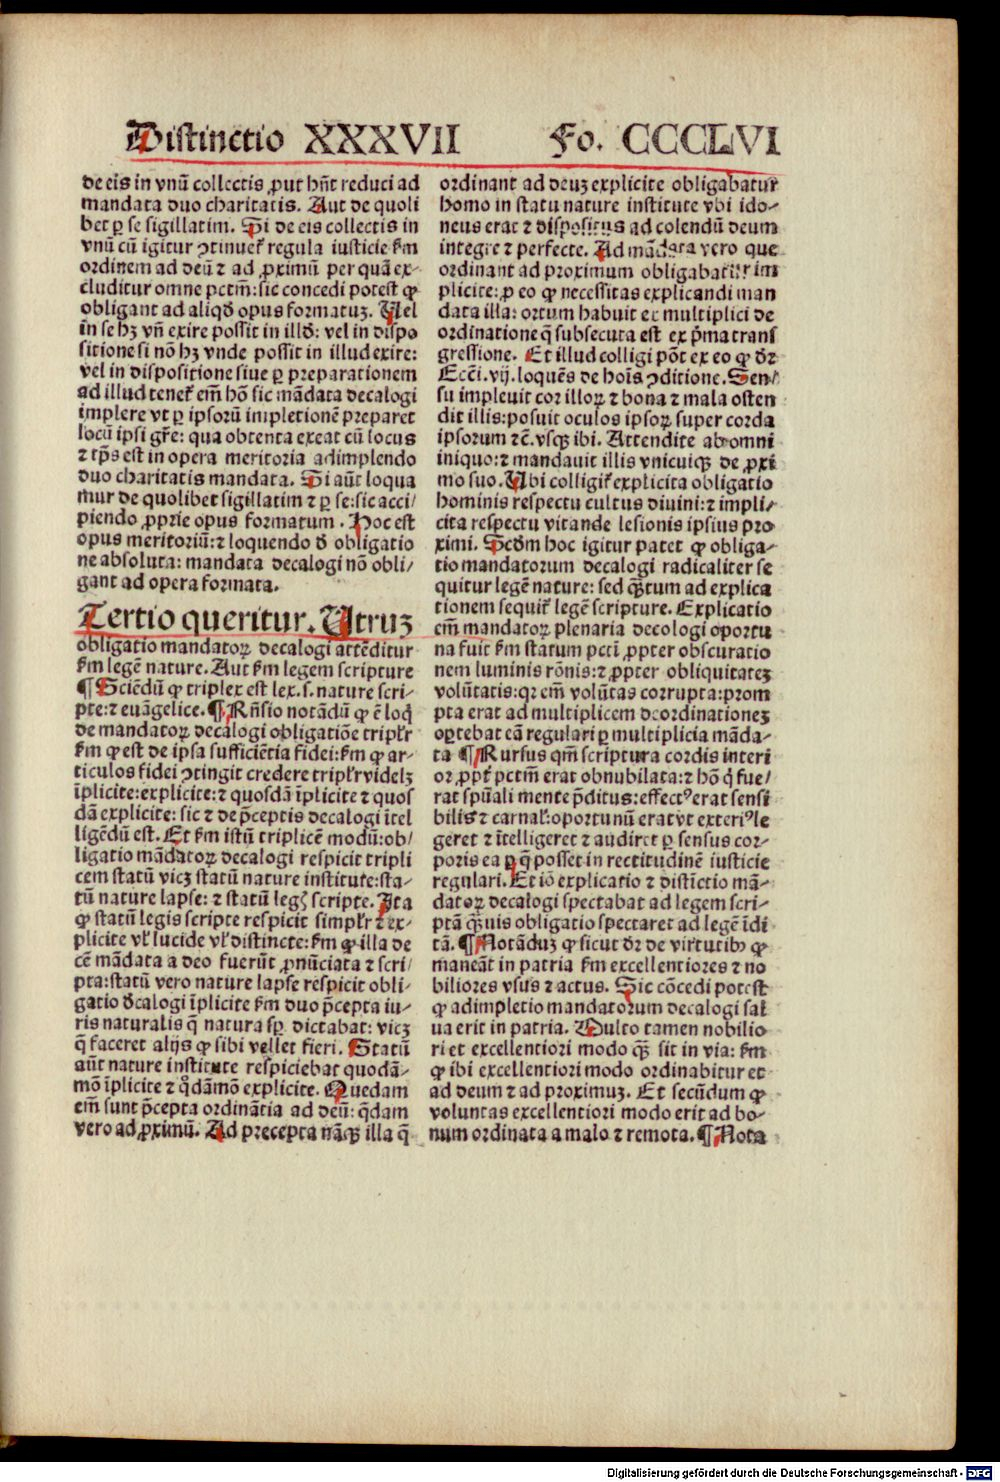 Distinctio XXXVII Fo. CCCLVI
de eis in vnū collectis ꝓut hn̄t reduci ad
mandata duo charitatis. Aut de quoli
bet ꝑ se sigillatim. Si de eis collectis in
vnū cū igitur ꝯtinuet᷑ regula iusticie fm
ordinem ad deū ⁊ ad ꝓximū per quā ex-
cluditur omne pctm̄: sic concedi potest ꝙ
obligant ad aliqd̄ opus formatuꝫ. Vel
in se hꝫ vn̄ exire possit in illd̄: vel in dispo
sitione si nō hꝫ vnde possit in illud exire:
vel in dispositione siue ꝑ preparationem
ad illud tenet᷑ em̄ hō sic mādata decalogi
implere vt ꝑ ipsorū impletionē preparet
locū ipsi gr̄e: qua obtenta exeat cū locus
⁊ tp̄s est in opera meritoria adimplendo
duo charitatis mandata. Si aūt loqua
mur de quolibet sigillatim ⁊ ꝑ se: sic acci/
piendo ꝓprie opus formatum. Hoc est
opus meritoriū: ⁊ loquendo d̄ obligatio
ne absoluta: mandata decalogi nō obli/
gant ad opera formata.
Tertio queritur. Utruꝫ
obligatio mandatoꝝ decalogi attēditur
fm legē nature. Aut fm legem scripture
¶ Sciēdū ꝙ triplex est lex. s. nature scri-
pte: ⁊ euāgelice. ¶ Rn̄sio notādū ꝙ ē loq̄
de mandatoꝝ decalogi obligatiōe tripl᷑r
fm ꝙ est de ipsa sufficiētia fidei: fm ꝙ ar-
ticulos fidei ꝯtingit credere tripl᷑r videlꝫ
īplicite: explicite: ⁊ quosdā īplicite ⁊ quos
dā explicite: sic ⁊ de p̄ceptis decalogi ītel
ligēdū est. Et fm istū triplicē modū: ob/
ligatio mādatoꝝ decalogi respicit tripli
cem statū vicꝫ statū nature institute: sta-
tū nature lapse: ⁊ statū legꝭ scripte. Ita
ꝙ statū legis scripte respicit simpl᷑r ⁊ ex-
plicite vl᷑ lucide vl᷑ distincte: fm ꝙ illa de
cē mādata a deo fuerūt ꝓnūciata ⁊ scri/
pta: statū vero nature lapse respicit obli-
gatio d̄calogi īplicite fm duo p̄cepta iu-
ris naturalis q̄ natura sꝑ dictabat: vicꝫ
q̄ faceret alijs ꝙ sibi vellet fieri. Statū
aūt nature institute respiciebat quodā-
mō īplicite ⁊ qd̄āmō explicite. Quedam
em̄ sunt p̄cepta ordināṫia ad deū: q̄dam
vero ad ꝓximū. Ad precepta nāqꝫ illa q̄
ordinant ad deuꝫ explicite obligabatur
homo in statu nature institute vbi ido-
neus erat ⁊ dispositus ad colendū deum
integre ⁊ perfecte. Ad mādata vero que
ordinant ad proximum obligabatur im
plicite: ꝓ eo ꝙ necessitas explicandi man
data illa: ortum habuit ex multiplici de
ordinatione q̄ subsecuta est ex p̄ma trans
gressione. Et illud colligi pōt ex eo ꝙ dr̄
Ecc̄i. vij. loquēs de hoīs ꝯditione. Sen/
su impleuit cor illoꝝ ⁊ bona ⁊ mala osten
dit illis: posuit oculos ipsoꝝ super corda
ipsorum ⁊c̄. vsqꝫ ibi. Attendite ab omni
iniquo: ⁊ mandauit illis vnicuiqꝫ de ꝓxi
mo suo. Ubi colligit᷑ explicita obligatio
hominis respectu cultus diuini: ⁊ impli/
cita respectu vitande lesionis ipsius pro
ximi. Scd̄m hoc igitur patet ꝙ obliga-
tio mandatorum decalogi radicaliter se
quitur legē nature: sed qꝫtum ad explica
tionem sequit᷑ legē scripture. Explicatio
em̄ mandatoꝝ plenaria decologi oportu
na fuit fm statum pcti ꝓpter obscuratio
nem luminis rōnis: ⁊ ꝓpter obliquitateꝫ
volūtatis: qꝛ em̄ volūtas corrupta: prom
pta erat ad multiplicem deordinationeꝫ
oꝑtebat eā regulari ꝑ multiplicia māda-
ta ¶ Rursus qm̄ scriptura cordis interi
or ꝓpt᷑ pctm̄ erat obnubilata: ⁊ hō q̄ fue/
rat spūali mente p̄ditus: effectꝰ erat sensi
bilis ⁊ carnal᷑: oportunū erat vt exteriꝰ le
geret ⁊ ītelligeret ⁊ audiret ꝑ sensus cor-
poris ea ꝑ q̄ posset in rectitudinē iusticie
regulari. Et iō explicatio ⁊ distīctio mā-
datoꝝ decalogi spectabat ad legem scri-
ptā qꝫuis obligatio spectaret ad legē īdi
tā. ¶ Notāduꝫ ꝙ sicut dr̄ de virtutibꝫ ꝙ
maneāt in patria fm excellentiores ⁊ no
biliores vsus ⁊ actus. Sic cōcedi potest
ꝙ adimpletio mandatorum decalogi sal
ua erit in patria. Multo tamen nobilio
ri et excellentiori modo qꝫ sit in via: fm
ꝙ ibi excellentiori modo ordinabitur et
ad deum ⁊ ad proximuꝫ. Et secūdum ꝙ
voluntas excellentiori modo erit ad bo-
num ordinata a malo ⁊ remota. ¶ Nota
Digitalisierung gefördert durch die Deutsche Forschungsgemeinschaft - DFG